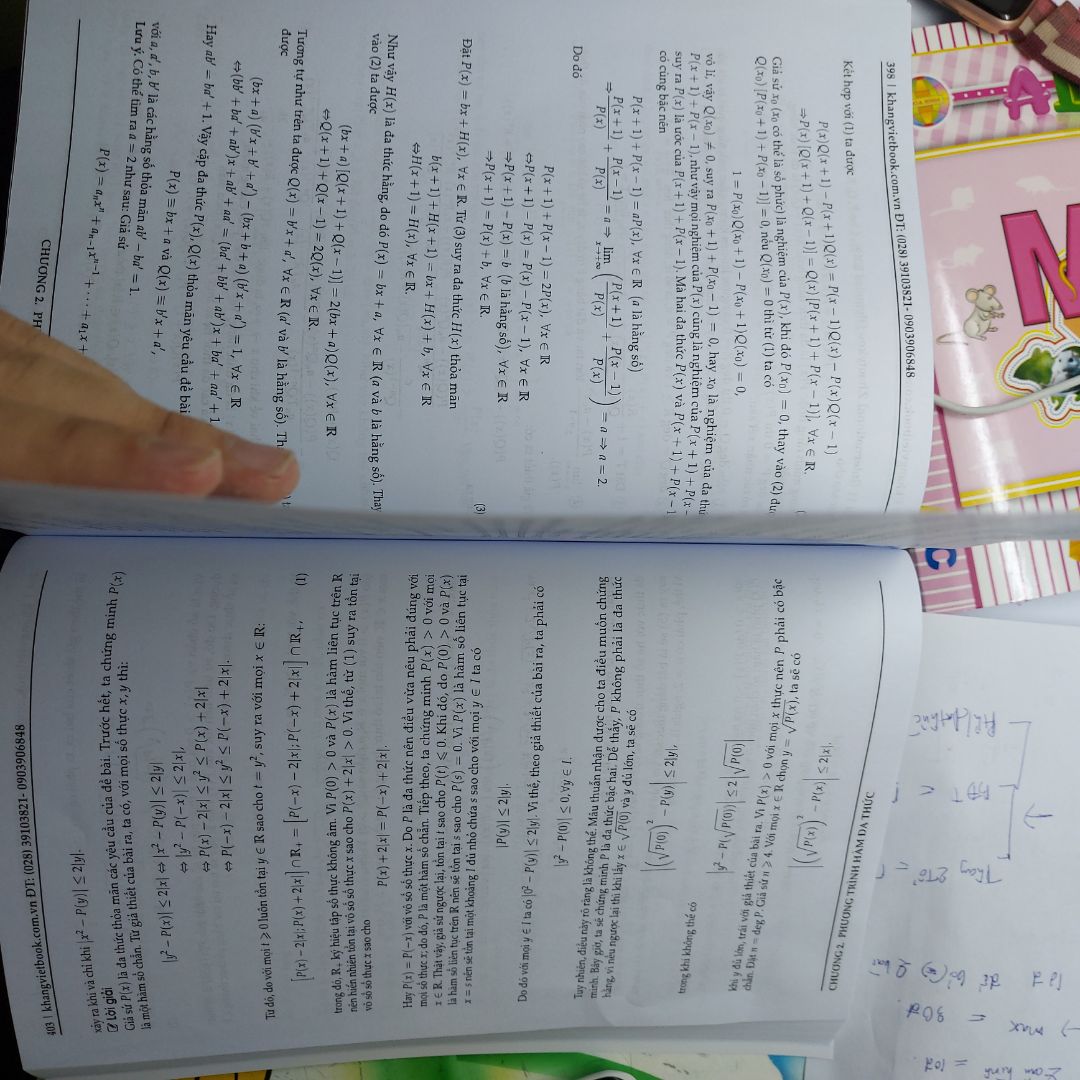 398 | khangvietbook.com.vn ĐT: (028) 39103821- 0903906848
Kết hợp với (1) ta được
P(x)Q(x+1) − P(x+1)Q(x) = P(x−1)Q(x) − P(x)Q(x−1)
⇒P(x)[Q(x+1) + Q(x−1)] = Q(x)[P(x+1) + P(x−1)], ∀x ∈ ℝ.
Giả sử x₀ (x₀ có thể là số phức) là nghiệm của P(x), khi đó P(x₀) = 0, thay vào (2)
Q(x₀)[P(x₀+1) + P(x₀−1)] = 0, nếu Q(x₀) = 0 thì từ (1) ta có
1 = P(x₀)Q(x₀+1) − P(x₀+1)Q(x₀) = 0,
vô lí, vậy Q(x₀) ≠ 0, suy ra P(x₀+1) + P(x₀−1) = 0, hay x₀ là nghiệm của đa
P(x+1) + P(x−1), như vậy mọi nghiệm của P(x) cũng là nghiệm của P(x+1) + P(x−
suy ra P(x) là ước của P(x+1) + P(x−1). Mà hai đa thức P(x) và P(x+1) + P(x−1
có cùng bậc nên
P(x+1) + P(x−1) = aP(x), ∀x ∈ ℝ (a là hằng số)
⇒ P(x+1)/P(x) + P(x−1)/P(x) = a ⇒ lim x→+∞ (P(x+1)/P(x) + P(x−1)/P(x)) = a ⇒ a = 2.
Do đó
P(x+1) + P(x−1) = 2P(x), ∀x ∈ ℝ
⇔P(x+1) − P(x) = P(x) − P(x−1), ∀x ∈ ℝ
⇒P(x+1) − P(x) = b (b là hằng số), ∀x ∈ ℝ
⇒P(x+1) = P(x) + b, ∀x ∈ ℝ (3)
Đặt P(x) = bx + H(x), ∀x ∈ ℝ. Từ (3) suy ra đa thức H(x) thỏa mãn
b(x+1) + H(x+1) = bx + H(x) + b, ∀x ∈ ℝ
⇔H(x+1) = H(x), ∀x ∈ ℝ.
Như vậy H(x) là đa thức hằng, do đó P(x) = bx + a, ∀x ∈ ℝ (a và b là hằng số). Thay
vào (2) ta được
(bx+a)[Q(x+1) + Q(x−1)] = 2(bx+a)Q(x), ∀x ∈ ℝ
⇔Q(x+1) + Q(x−1) = 2Q(x), ∀x ∈ ℝ.
Tương tự như trên ta được Q(x) = b′x + a′, ∀x ∈ ℝ (a′ và b′ là hằng số).
được
(bx+a)(b′x+b′+a′) − (bx+b+a)(b′x+a′) = 1, ∀x ∈ ℝ
⇔(bb′+ba′+ab′)x + ab′ + aa′ = (ba′+bb′+ab′)x + ba′ + aa′ + 1
Hay ab′ = ba′ + 1. Vậy cặp đa thức P(x), Q(x) thỏa mãn yêu cầu đề bài
P(x) ≡ bx + a và Q(x) ≡ b′x + a′,
với a, a′, b, b′ là các hằng số thỏa mãn ab′ − ba′ = 1.
Lưu ý. Có thể tìm ra a = 2 như sau: Giả sử
P(x) = aₙxⁿ + aₙ₋₁xⁿ⁻¹ + ⋯ + a₁x +
CHƯƠNG 2.
403 | khangvietbook.com.vn ĐT: (028) 39103821- 0903906848
xảy ra khi và chỉ khi |x² − P(y)| ≤ 2|y|.
Lời giải
Giả sử P(x) là đa thức thỏa mãn các yêu cầu của đề bài. Trước hết, ta chứng minh P(x)
là một hàm số chẵn. Từ giả thiết của bài ra, ta có, với mọi số thực x, y thì:
|y² − P(x)| ≤ 2|x| ⇔ |x² − P(y)| ≤ 2|y|
⇔ |y² − P(−x)| ≤ 2|x|,
⇔ P(x) − 2|x| ≤ y² ≤ P(x) + 2|x|
⇔ P(−x) − 2|x| ≤ y² ≤ P(−x) + 2|x|.
Từ đó, do với mọi t ⩾ 0 luôn tồn tại y ∈ ℝ sao cho t = y², suy ra với mọi x ∈ ℝ:
[P(x) − 2|x|; P(x) + 2|x|] ∩ ℝ₊ = [P(−x) − 2|x|; P(−x) + 2|x|] ∩ ℝ₊, (1)
trong đó, ℝ₊ ký hiệu tập số thực không âm. Vì P(0) > 0 và P(x) là hàm liên tục trên ℝ
nên hiển nhiên tồn tại vô số số thực x sao cho P(x) + 2|x| > 0. Vì thế, từ (1) suy ra tồn tại
vô số số thực x sao cho
P(x) + 2|x| = P(−x) + 2|x|.
Hay P(x) = P(−x) với vô số số thực x. Do P là đa thức nên điều vừa nêu phải đúng với
mọi số thực x; do đó, P là một hàm số chẵn. Tiếp theo, ta chứng minh P(x) > 0 với mọi
x ∈ ℝ. Thật vậy, giả sử ngược lại, tồn tại t sao cho P(t) ⩽ 0. Khi đó, do P(0) > 0 và P(x)
là hàm số liên tục trên ℝ nên sẽ tồn tại s sao cho P(s) = 0. Vì P(x) là hàm số liên tục tại
x = s nên sẽ tồn tại một khoảng I đủ nhỏ chứa s sao cho với mọi y ∈ I ta có
|P(y)| ≤ 2|y|.
Do đó với mọi y ∈ I ta có |0² − P(y)| ≤ 2|y|. Vì thế, theo giả thiết của bài ra, ta phải có
|y² − P(0)| ≤ 0, ∀y ∈ I.
Tuy nhiên, điều này rõ ràng là không thể. Mâu thuẫn nhận được cho ta điều muốn chứng
minh. Bây giờ, ta sẽ chứng minh P là đa thức bậc hai. Dễ thấy, P không phải là đa thức
hằng, vì nếu ngược lại thì khi lấy x ∈ √P(0) và y đủ lớn, ta sẽ có
|(√P(0))² − P(y)| ≤ 2|y|,
trong khi không thể có
|y² − P(√P(0))| ≤ 2|√P(0)|
khi y đủ lớn, trái với giả thiết của bài ra. Vì P(x) > 0 với mọi x thực nên P phải có bậc
chẵn. Đặt n = deg P. Giả sử n ⩾ 4. Với mọi x ∈ ℝ chọn y = √P(x), ta sẽ có
|(√P(x))² − P(x)| ≤ 2|x|.
CHƯƠNG 2. PHƯƠNG TRÌNH HÀM ĐA THỨC
M
C
BĐT
max = 30đ
= 10đ